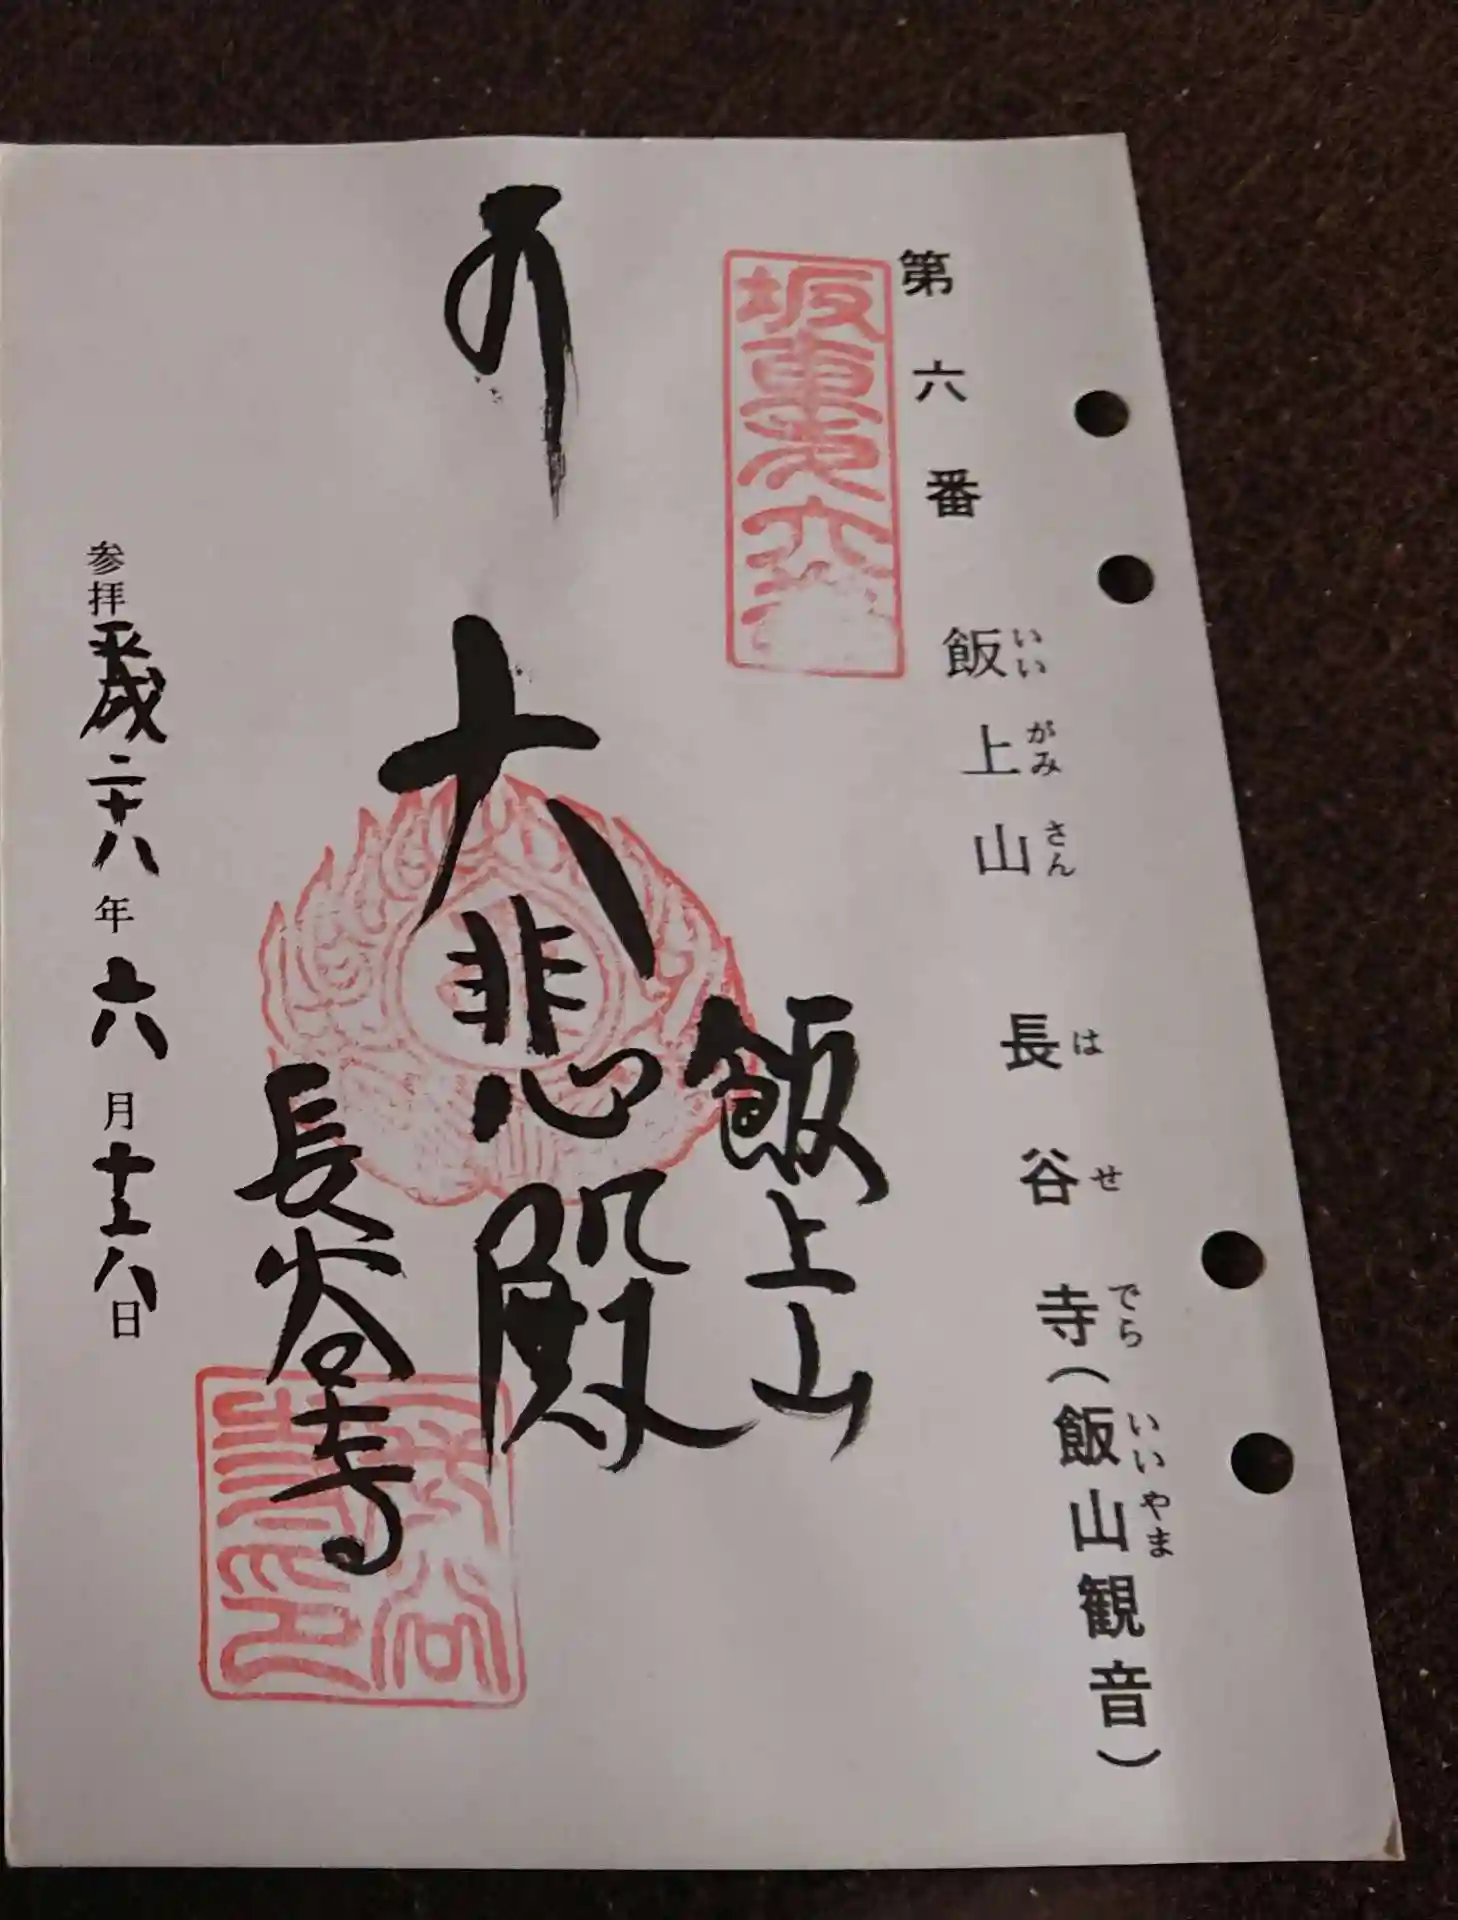 第六番 飯上山 長谷寺(飯山観音)
いいがみさん はせでら いいやま
坂東第六番
飯上山
大悲殿
長谷寺
参拝平成二十八年六月十八日